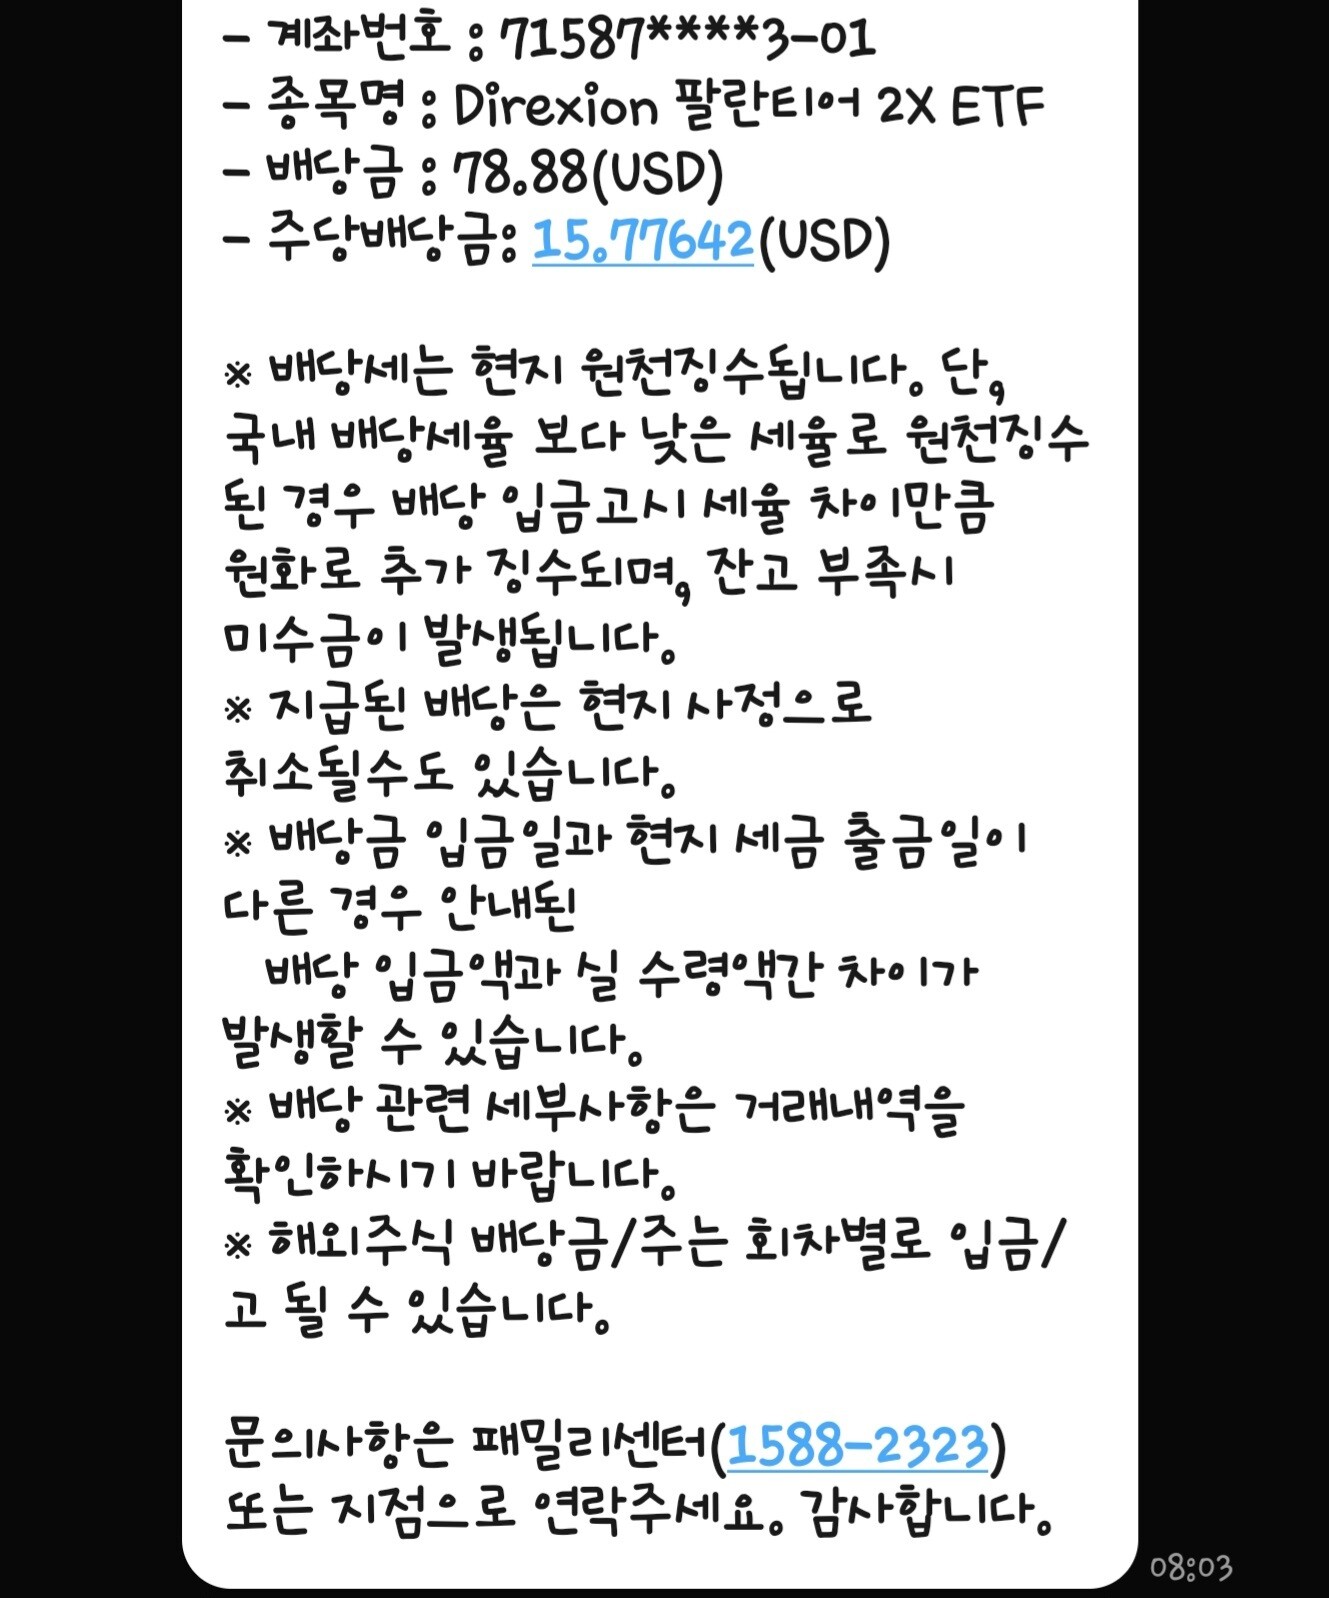 - 계좌번호 : 71587****3-01
- 종목명 : Direxion 팔란티어 2X ETF
- 배당금 : 78.88(USD)
- 주당배당금: 15.77642(USD)
※ 배당세는 현지 원천징수됩니다. 단,
국내 배당세율 보다 낮은 세율로 원천징수
된 경우 배당 입금고시 세율 차이만큼
원화로 추가 징수되며, 잔고 부족시
미수금이 발생됩니다.
※ 지급된 배당은 현지 사정으로
취소될수도 있습니다.
※ 배당금 입금일과 현지 세금 출금일이
다른 경우 안내된
배당 입금액과 실 수령액간 차이가
발생할 수 있습니다.
※ 배당 관련 세부사항은 거래내역을
확인하시기 바랍니다.
※ 해외주식 배당금/주는 회차별로 입금/
고 될 수 있습니다.
문의사항은 패밀리센터(1588-2323)
또는 지점으로 연락주세요. 감사합니다.
08:03